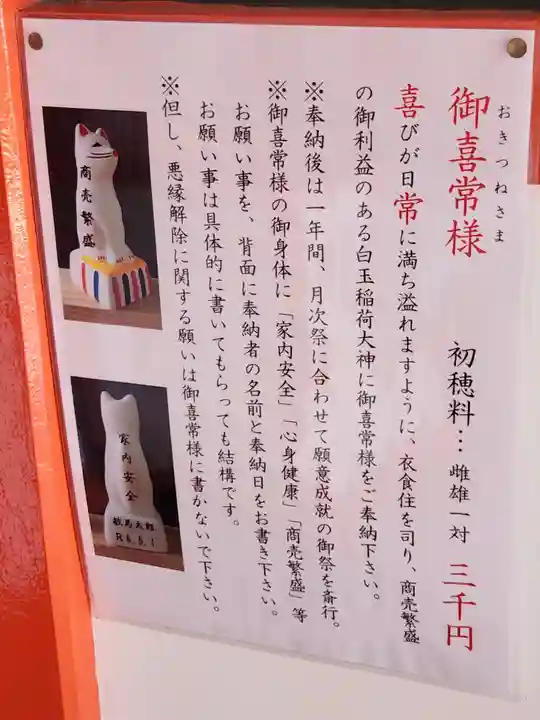 おきつねさま
御喜常様
初穂料…雌雄一対 三千円
喜びが日常に満ち溢れますように、衣食住を司り、商売繁盛
の御利益のある白玉稲荷大神に御喜常様をご奉納下さい。
※奉納後は一年間、月次祭に合わせて願意成就の御祭を斎行。
※御喜常様の御身体に「家内安全」「心身健康」「商売繁盛」等
お願い事を、背面に奉納者の名前と奉納日をお書き下さい。
お願い事は具体的に書いてもらっても結構です。
※但し、悪縁解除に関する願いは御喜常様に書かないで下さい。
商売繁盛
家内安全
敏馬太郎
R6.6.1